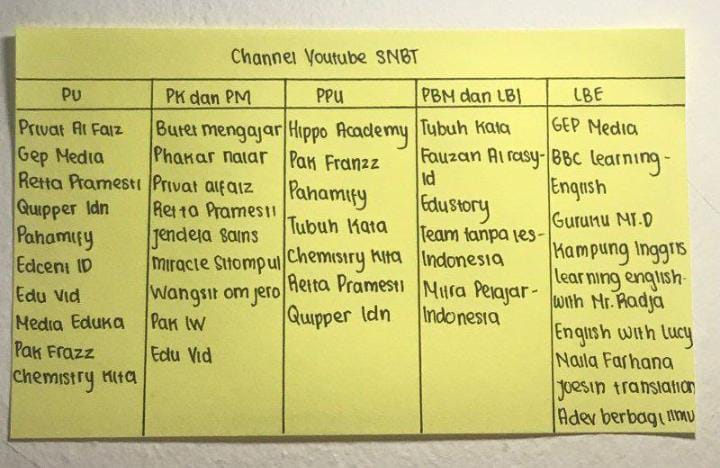 Channel Youtube SNBT
PU
Privat Al Faiz
Gep Media
Retta Pramesti
Quipper Idn
Pahamify
Edcent ID
Edu Vid
Media Eduka
Pak Frazz
Chemistry Kita
PK dan PM
Butet mengajar
Phakar nalar
Privat alfaiz
Retta Pramesti
Jendela Sains
Miracle Sitompul
Wangsit om jero
Pak IW
Edu Vid
PPU
Hippo Academy
Pak Franzz
Pahamify
Tubuh Kata
Chemistry Kita
Retta Pramesti
Quipper Idn
PBM dan LBI
Tubuh Kata
Fauzan Al rasy-
id
Edustory
Team tanpa les-
Indonesia
Mitra Pelajar-
Indonesia
LBE
GEP Media
BBC learning-
English
Guruku Mr.D
Kampung Inggris
learning english-
with Mr. Radja
English with Lucy
Naila Farhana
Joesin translation
Adev berbagi ilmu